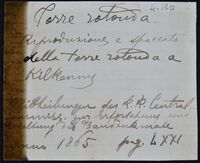 4.160
Torre rotonda.
Riproduzione e spaccato
della torre rotonda a
Kilkenny
Mittheilungen des K.K. Central
Commiss. zur Erforschung und
Erhaltung der Baudenkmale
anno 1865 pag. LXXI